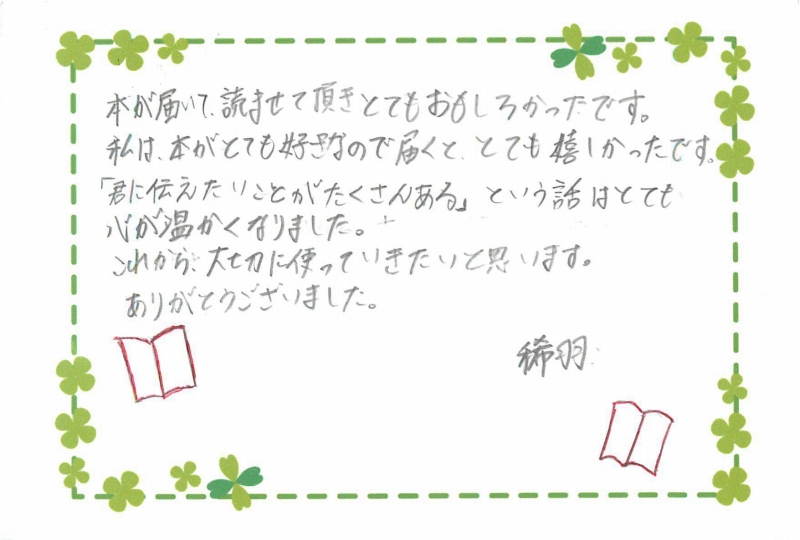 本が届いて、読ませて頂きとてもおもしろかったです。
私は、本がとても好きなので届くと、とても嬉しかったです。
「君に伝えたいことがたくさんある」という話はとても
心が温かくなりました。
これから、大切に使っていきたいと思います。
ありがとうございました。
稀羽